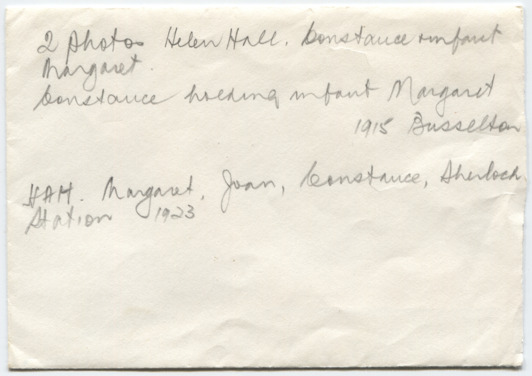 2 Photos Helen Hall. Constance + infant
Margaret.
Constance holding infant Margaret
1915 Busselton
HAH. Margaret, Joan, Constance, Sherlock
Station 1923